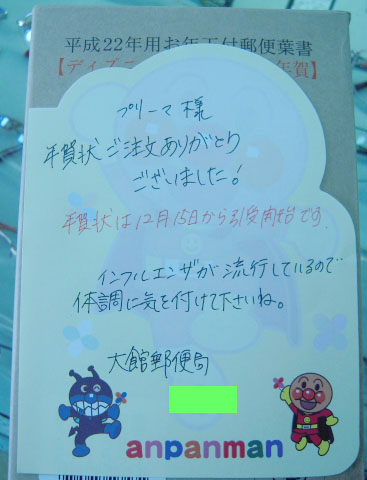 平成22年用お年玉付郵便葉書
【ディズニ
年賀】
プリーマ様
年賀状ご注文ありがとう
ございました!
年賀状は12月15日から引受開始です.
インフルエンザが流行しているので
体調に気を付けて下さいね。
大館郵便局
anpanman